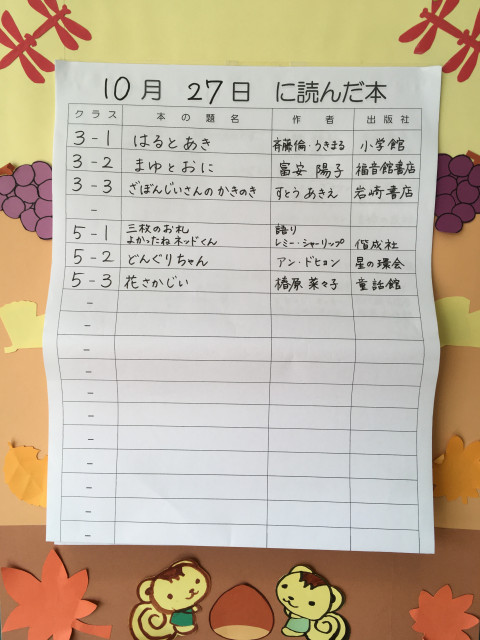 10月 27日 に読んだ本
クラス 本の題名 作者 出版社
3-1 はるとあき 斉藤倫・うきまる 小学館
3-2 まゆとおに 富安陽子 福音館書店
3-3 ざぼんじいさんのかきのき すとうあきえ 岩崎書店
-
5-1 三枚のお札 語り
よかったねネッドくん レミー・シャーリップ 偕成社
5-2 どんぐりちゃん アン・ドヒョン 星の環会
5-3 花さかじい 椿原菜々子 童話館
-
-
-
-
-
-
-
-
-
-
-